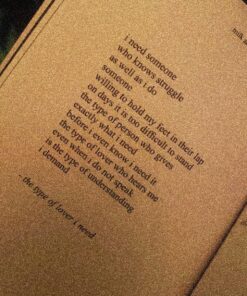 milk a
i need someone
who knows struggle
as well as i do
someone
willing to hold my feet in their lap
on days it is too difficult to stand
the type of person who gives
exactly what i need
before i even know i need it
the type of lover who hears me
even when i do not speak
is the type of understanding
i demand
- the type of lover i need